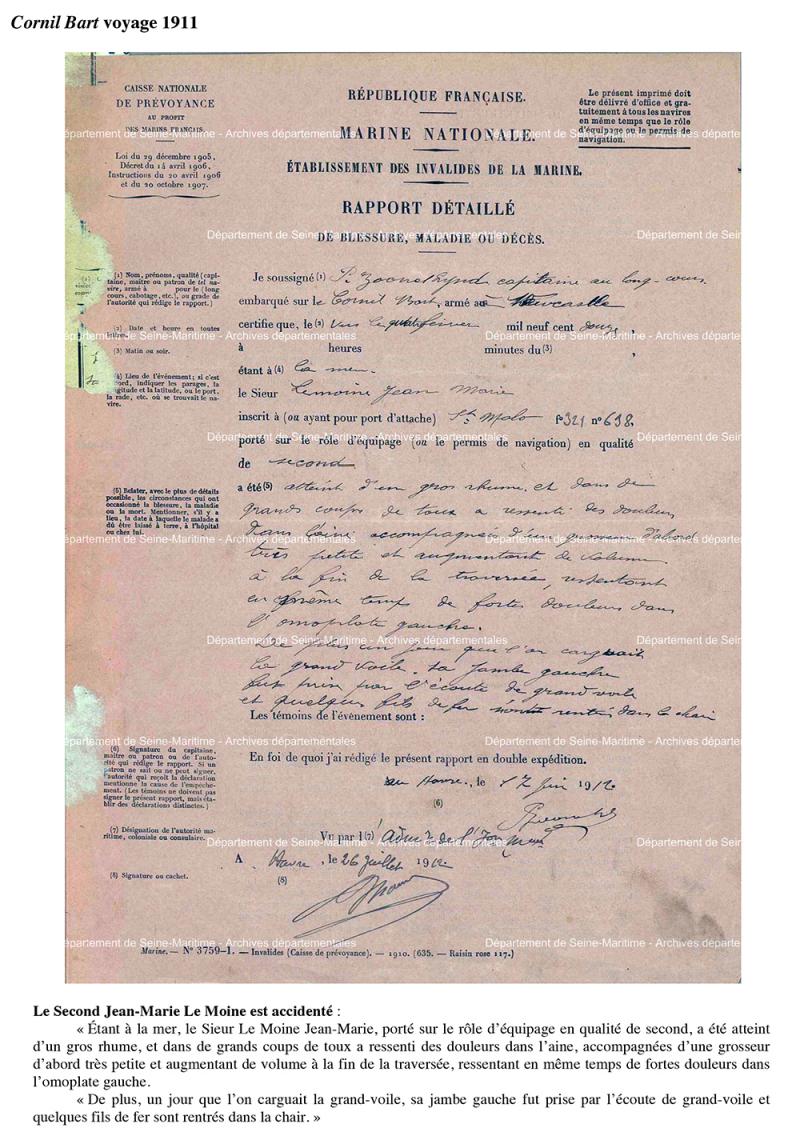 Cornil Bart voyage 1911
CAISSE NATIONALE
DE PRÉVOYANCE
AU PROFIT
DES MARINS FRANÇAIS.
Loi du 29 décembre 1905,
Décret du 14 avril 1906,
Instructions du 20 avril 1906
et du 20 octobre 1907.
RÉPUBLIQUE FRANÇAISE.
MARINE NATIONALE.
ÉTABLISSEMENT DES INVALIDES DE LA MARINE.
RAPPORT DÉTAILLÉ
DE BLESSURE, MALADIE OU DÉCÈS.
Le présent imprimé doit
être délivré d'office et gra-
tuitement à tous les navires
en même temps que le rôle
d'équipage ou le permis de
navigation.
Département de Seine-Maritime - Archives départementales
(1) Nom, prénoms, qualité (capi-
taine, maître ou patron de tel na-
vire, armé à pour le (long
cours, cabotage, etc.), ou grade de
l'autorité qui rédige le rapport.)
(2) Date et heure en toutes
lettres.
(3) Matin ou soir.
(4) Lieu de l'événement; si c'est
à bord, indiquer les parages, la
longitude et la latitude, ou le port,
la rade, etc. où se trouvait le na-
vire.
(5) Relater, avec le plus de détails
possible, les circonstances qui ont
occasionné la blessure, la maladie
ou la mort. Mentionner, s'il y a
lieu, la date à laquelle le malade a
dû être laissé à terre, à l'hôpital
ou chez lui.
(6) Signature du capitaine,
maître ou patron ou de l'auto-
rité qui rédige le rapport. Si un
patron ne sait ou ne peut signer,
l'autorité qui reçoit la déclaration
mentionne la cause de l'empêche-
ment. (Les témoins ne doivent pas
signer le présent rapport, mais éta-
blir des déclarations distinctes.)
(7) Désignation de l'autorité ma-
ritime, coloniale ou consulaire.
(8) Signature ou cachet.
Je soussigné (1) capitaine au long-cours
embarqué sur le Cornil Bart, armé à Newcastle
certifie que, le (2) vers le quatre février mil neuf cent douze,
à heures minutes du (3) ,
étant à (4) la mer.
le Sieur Lemoine Jean Marie
inscrit à (ou ayant pour port d'attache) St Malo fo 321 no 698,
porté sur le rôle d'équipage (ou le permis de navigation) en qualité
de second
a été (5) atteint d'un gros rhume, et dans de
grands coups de toux a ressenti des douleurs
dans l'aine, accompagnée d'une grosseur d'abord
très petite et augmentant de volume
à la fin de la traversée, ressentant
en même temps de fortes douleurs dans
l'omoplate gauche.
De plus un jour que l'on carguait
la grand voile, sa jambe gauche
fut pris par l'écoute de grand voile
et quelques fils de fer sont rentrés dans la chair
Les témoins de l'évènement sont :
En foi de quoi j'ai rédigé le présent rapport en double expédition.
au Havre, le 17 Juin 1912
(6)
Vu par l (7)
A Havre, le 26 Juillet 1912
(8)
Marine. — No 3759-1. — Invalides (Caisse de prévoyance). — 1910. (635. — Raisin rose 117.)
Le Second Jean-Marie Le Moine est accidenté :
« Étant à la mer, le Sieur Le Moine Jean-Marie, porté sur le rôle d'équipage en qualité de second, a été atteint
d'un gros rhume, et dans de grands coups de toux a ressenti des douleurs dans l'aine, accompagnées d'une grosseur
d'abord très petite et augmentant de volume à la fin de la traversée, ressentant en même temps de fortes douleurs dans
l'omoplate gauche.
« De plus, un jour que l'on carguait la grand-voile, sa jambe gauche fut prise par l'écoute de grand-voile et
quelques fils de fer sont rentrés dans la chair. »